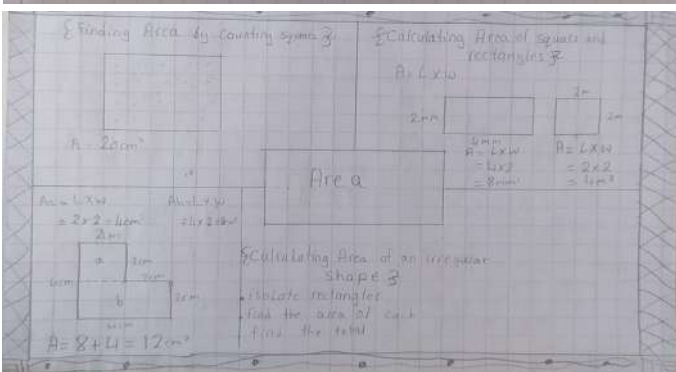 { Finding Area by Counting squares }
A = 20cm²
{ Calculating Area of squares and
rectangles }
A= L x W
2mm
4mm
A = L x W
= 4x2
= 8mm²
2m
2m
A = L x W
= 2x2
= 4m²
Area
Aa = L x W
= 2x2 = 4cm²
Ab = L x W
= 4x2 = 8cm²
2cm
a
2cm
2cm
4cm
b
2cm
4cm
A = 8+4 = 12cm²
{ Calculating Area of an irregular
shape }
isolate rectangles
find the area of each
find the total